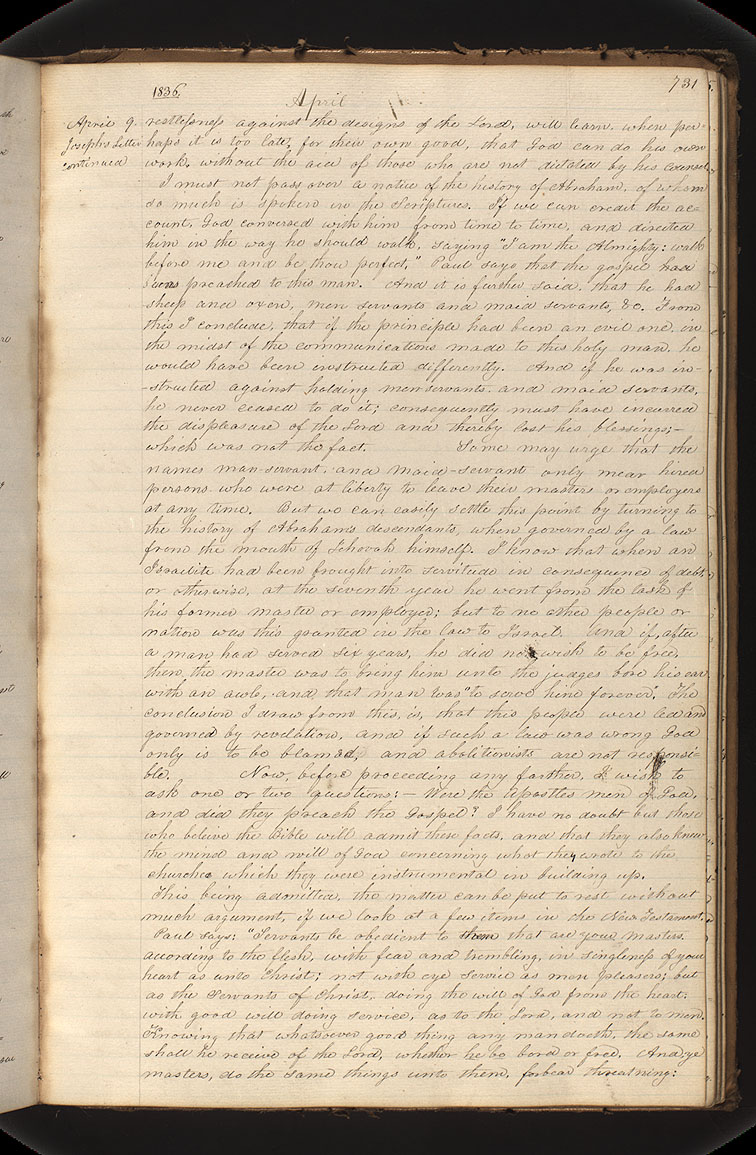 1836.
April
731
April 9.
Joseph's Letter
continued
restlessness against the designs of the Lord, will learn, when per-
haps it is too late, for their own good, that God can do his own
work, without the aid of those who are not dictated by his counsel.
I must not pass over a notice of the history of Abraham, of whom
so much is spoken in the Scriptures. If we can credit the ac-
count, God conversed with him from time to time, and directed
him in the way he should walk, saying "I am the Almighty: walk
before me and be thou perfect." Paul says that the gospel had
was preached to this man. And it is further said, that he had
sheep and oxen, men servants and maid servants, &c. From
this I conclude, that if the principle had been an evil one, in
the midst of the communications made to this holy man, he
would have been instructed differently. And if he was in-
-structed against holding menservants, and maid servants,
he never ceased to do it; consequently must have incurred
the displeasure of the Lord and thereby lost his blessings;-
which was not the fact. Some may urge that the
names man-servant, and maid-servant only mean hired
persons who were at liberty to leave their masters or employers
at any time. But we can easily settle this point by turning to
the history of Abraham's descendants, when governed by a law
from the mouth of Jehovah himself. I know that when an
Israelite had been brought into servitude in consequence of debt,
or otherwise, at the seventh year he went from the task of
his former master or employer; but to no other people or
nation was this granted in the law to Israel. And if, after
a man had served six years, he did not wish to be free,
then the master was to bring him unto the judges bore his ear
with an awl, and that man was "to serve him forever." The
conclusion I draw from this, is, that this people were led and
governed by revelation, and if such a law was wrong God
only is to be blamed, and abolitionists are not responsi-
ble. Now, before proceeding any farther, I wish to
ask one or two questions:- Were the Apostles men of God,
and did they preach the Gospel? I have no doubt but those
who believe the Bible will admit these facts, and that they also knew
the mind and will of God concerning what they wrote to the
churches which they were instrumental in building up.
This being admitted, the matter can be put to rest without
much argument, if we look at a few items in the New Testament.
Paul says: "Servants be obedient to them that are your masters
according to the flesh, with fear and trembling, in singleness of your
heart as unto Christ; not with eye service as men pleasers; but
as the Servants of Christ, doing the will of God from the heart:
with good will doing service, as to the Lord, and not to men,
Knowing that whatsoever good thing any man doeth, the same
shall he receive of the Lord, whether he be bond or free. And ye
masters, do the same things unto them, forbear threatning: